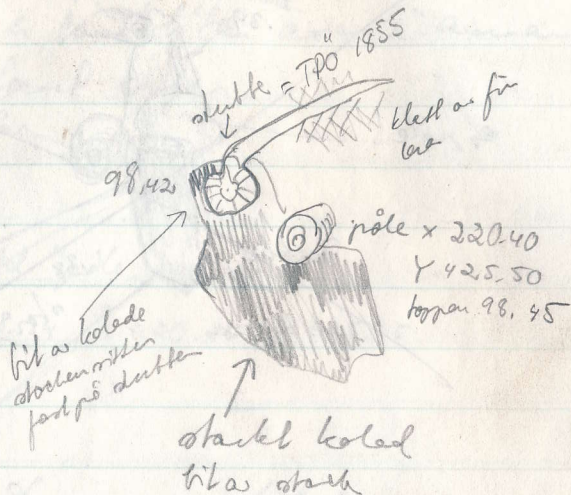 stubbe = TPÖ 1855
klatt av fin
lera
98,42
påle x 220.40
Y 425.50
toppen 98,45
bit av kolade
stocken sitter
fast på stubben
starkt kolad
bit av stock